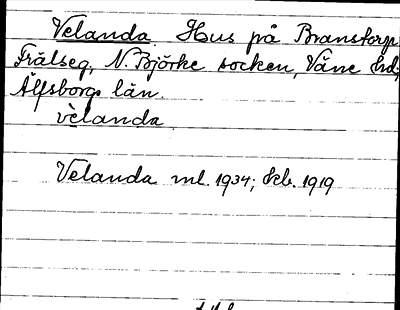 Velanda Hus på Branstorp
Frälseg, N. Björke socken, Väne hd,
Älfsborgs län.
vèlanda
Velanda ml. 1934; Kb. 1919